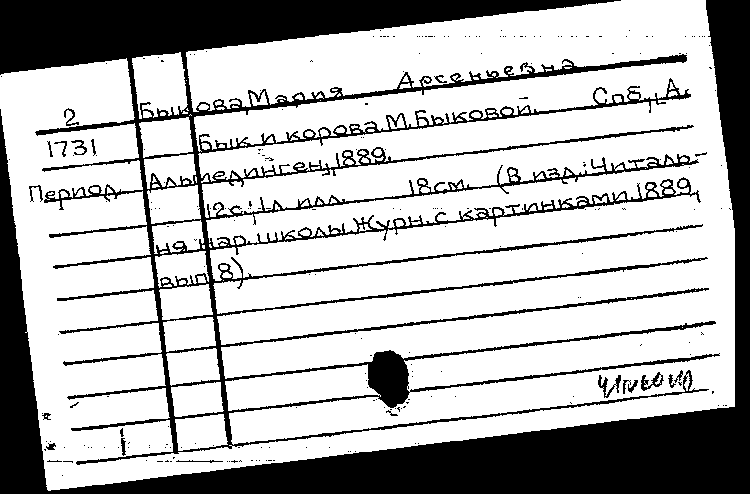 Быкова, Мария Арсеньевна
2
1731 Бык и корова М. Быковой. Спб., А.
Период. Альмединген, 1889.
12с.; 1л илл. 18см. (В изд.: Читаль-
ня нар. школы. Журн. с картинками. 1889,
вып. 8).